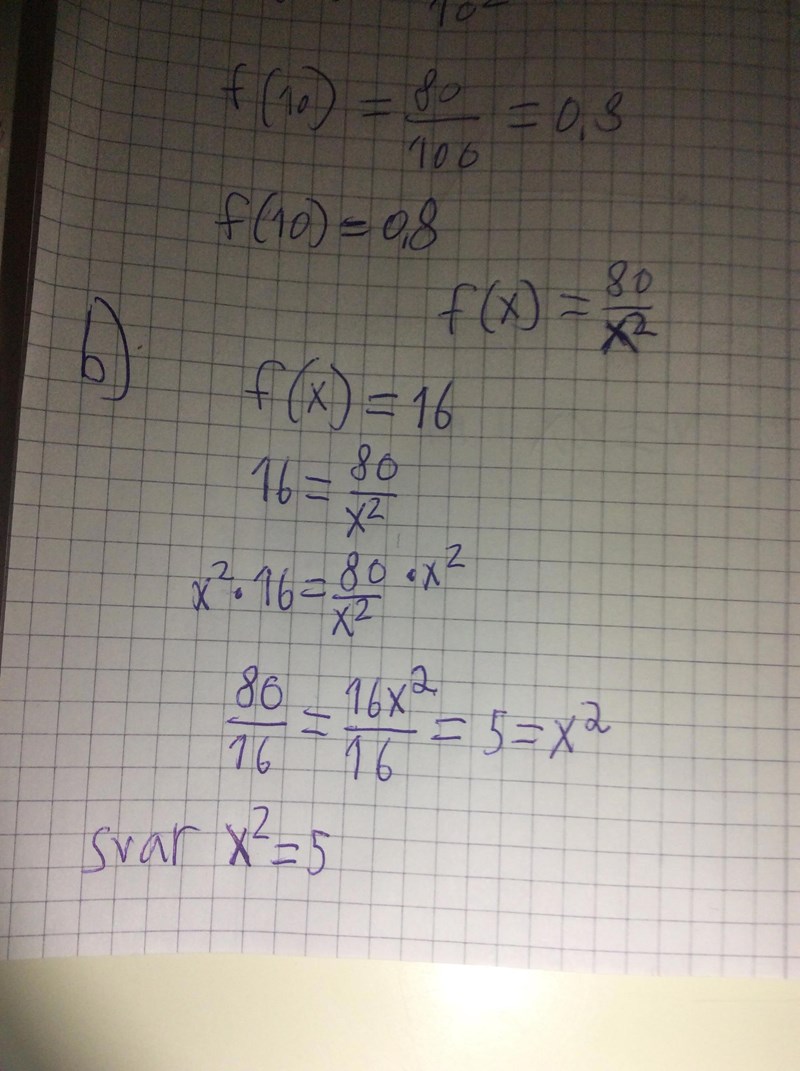 10²
f(10) = 80/100 = 0,8
f(10) = 0,8
f(x) = 80/x²
b)
f(x) = 16
16 = 80/x²
x² · 16 = 80/x² · x²
80/16 = 16x²/16 = 5 = x²
svar x² = 5